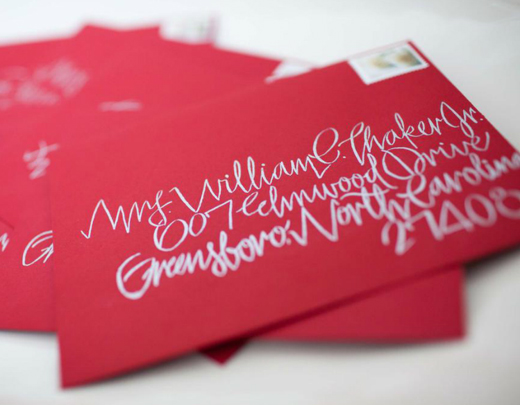 Mrs. William C. Thaker Jr.
607 Edmwood Drive
Greensboro, North Carolina
27408